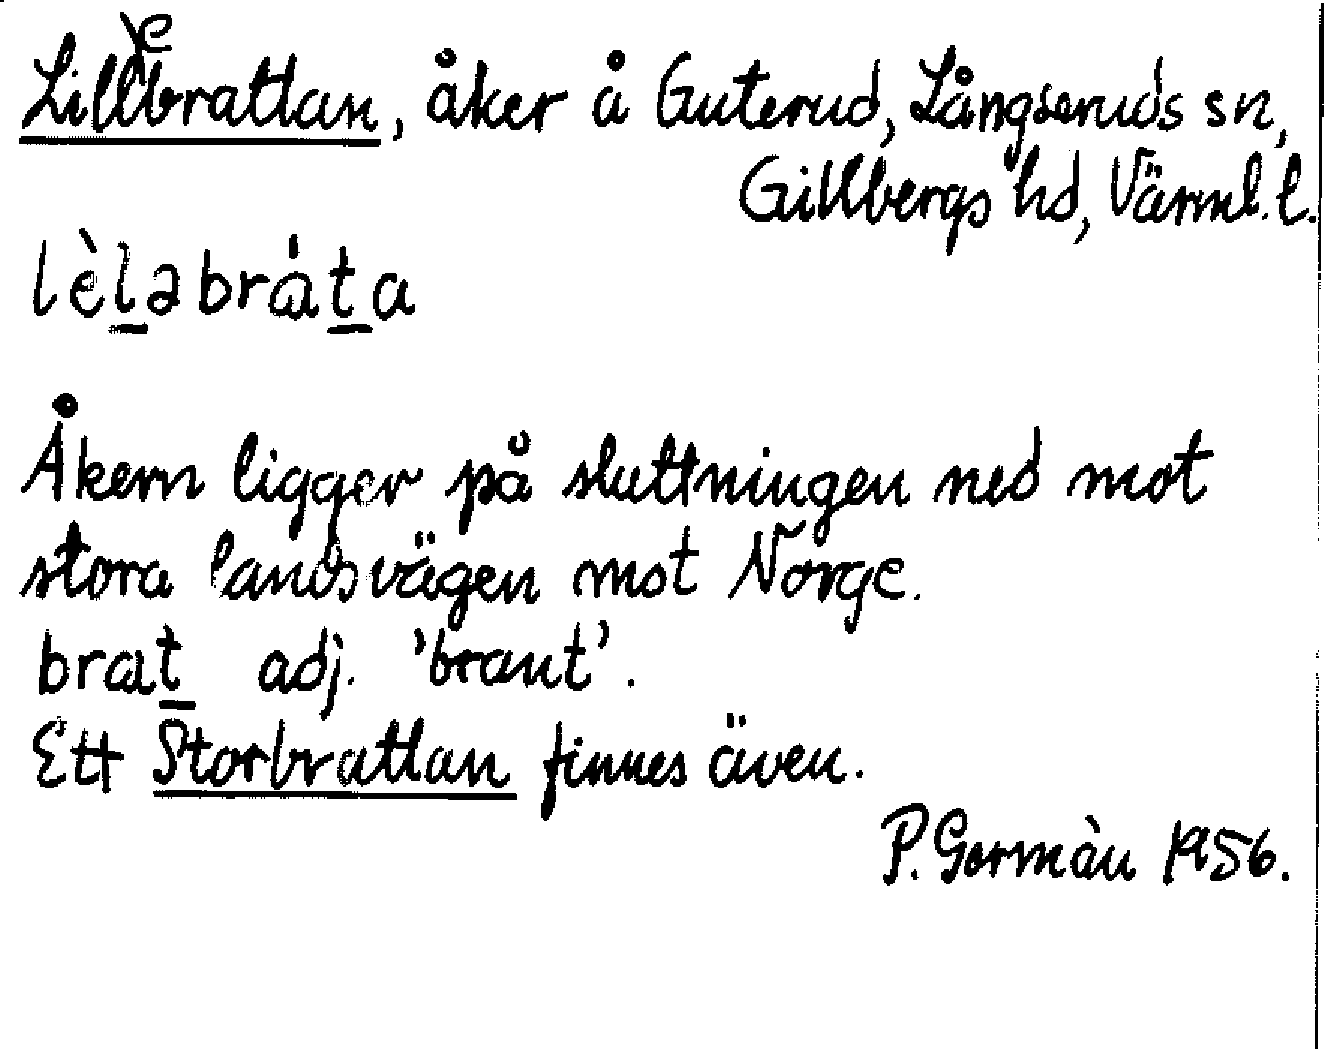 Lillebrattan, åker å Guterud, Långseruds sn,
Gillbergs hd, Värml. l.
lèləbráta
Åkern ligger på sluttningen ned mot
stora landsvägen mot Norge.
brat adj. 'brant'.
Ett Storbrattan finnes även.
P. Germàn 1956.